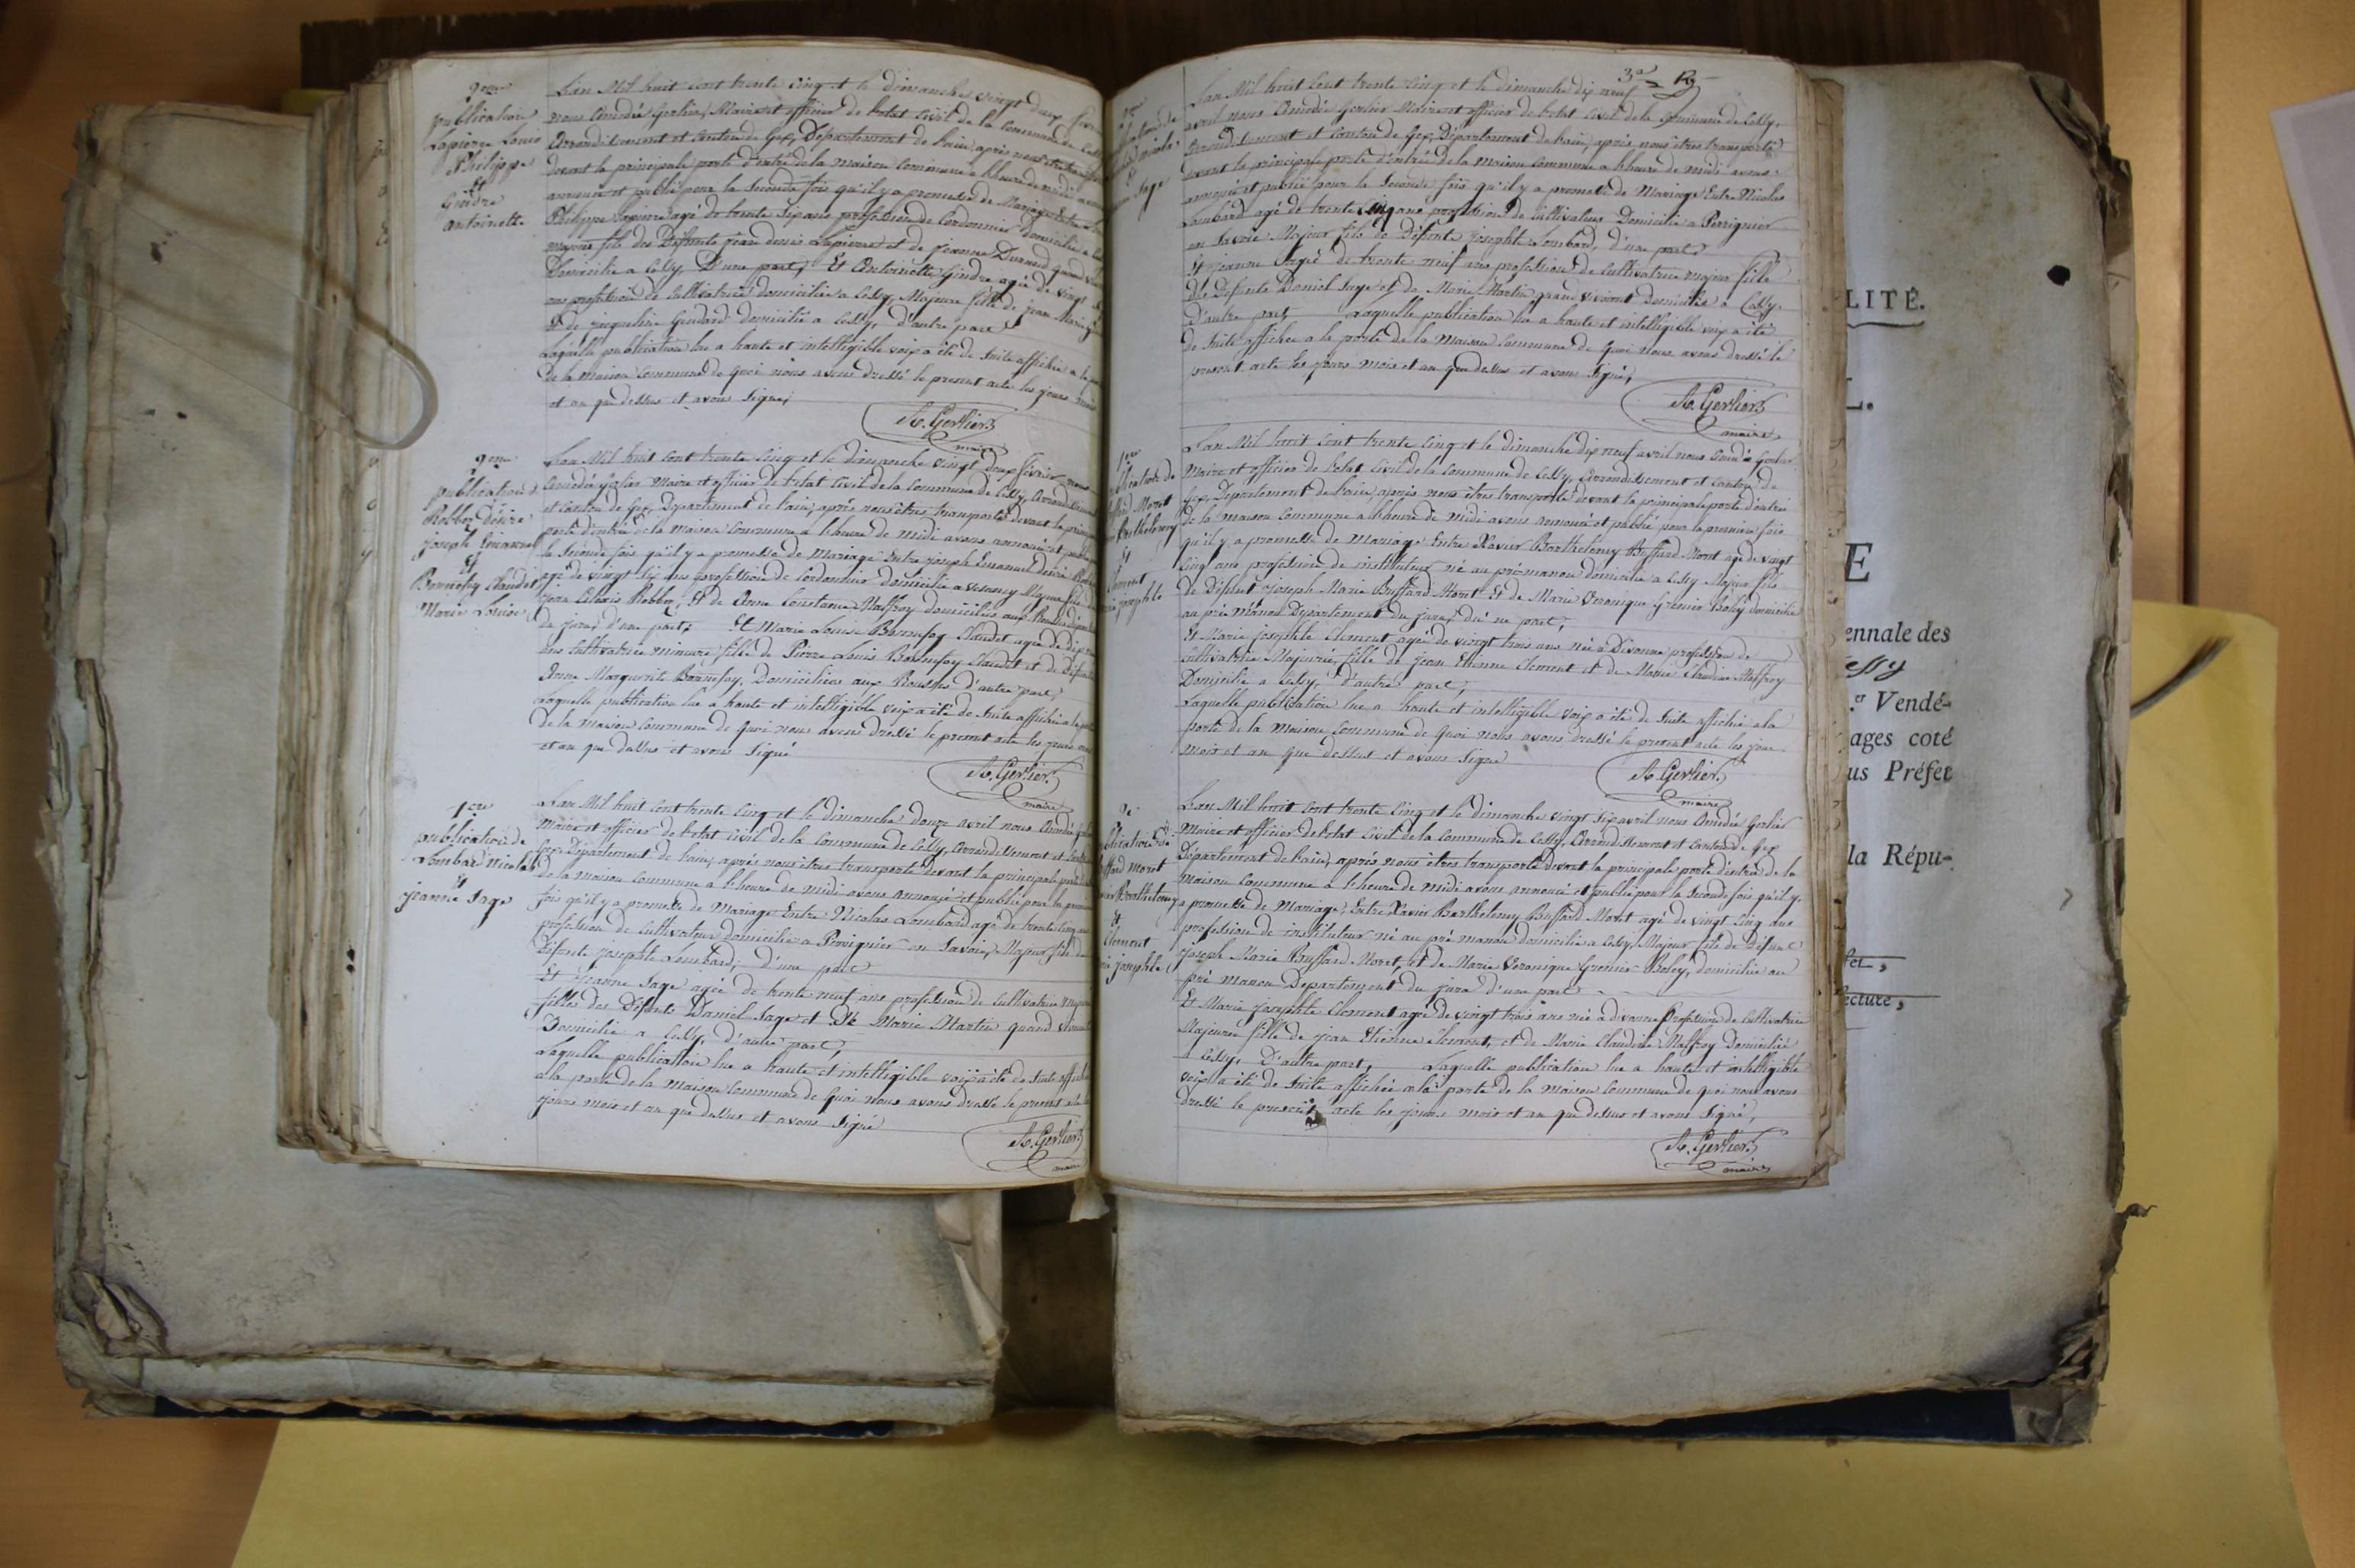 2eme
publication
Lapierre Louis
Philippe
Et
Gindre
antoinette
L'an Mil huit cent trente cinq et le dimanche vingt deux
nous Amédée Gerlier, Maire et officier de l'etat Civil de la Commune de
Arrondissement et Canton de Gex, Departement de l'ain, après nous être
devant la principale porte d'entré de la maison commune a l'heure de midi
annoncé et publié pour la seconde fois qu'il y a promesse de Mariage Entre
Philippe Lapierre agé de trente six ans profession de Cordonnier Domicilié a
majeur fils des Deffunts jean denis Lapierre et de jeanne Durand quand
Domicilié a Cessy, D'une part, Et Antoinette Gindre agée de vingt
ans profession de Cultivatrice domiciliée a Cessy, Majeure fille de jean Marie
Et de jacqueline Gindard domicilié a Cessy, d'autre part
Laquelle publication lue a haute et intelligible voix a été de suite affichée a la
de la maison Commune de quoi nous avons dressé le present acte les jours mois
et an que dessus et avons signé
A. Gerlier
maire
2eme
publication
Robbez Désiré
joseph Emanuel
Et
Bonnefoy Claudet
Marie Louise
L'an Mil huit cent trente cinq et le dimanche vingt deux février nous
Amédée Gerlier Maire et officier de l'etat Civil de la Commune de Cessy, Arrondissement
et Canton de Gex, Departement de l'ain, après nous êtres transporté devant la
porte d'entrée de la maison commune a l'heure de midi avons annoncé et
la seconde fois qu'il y a promesse de Mariage Entre joseph Emanuel désiré
agé de vingt six ans profession de Cordonnier domicilié a Vesancy Majeur fils
jean Alexis Robbez, Et de Anne Constance Maffroy domiciliés aux Rousses
du jura, d'une part, Et Marie Louise Bonnefoy Claudet agée de dix
ans Cultivatrice mineure fille de Pierre Louis Bonnefoy Claudet et de Défunte
Anne Marguerite Bonnefoy, Domiciliées aux Rousses d'autre part
Laquelle publication lue a haute et intelligible voix a été de suite affichée a la
de la maison Commune de quoi nous avons dressé le present acte les jours
et an que dessus et avons signé
A. Gerlier
maire
1ere
publication de
Lombard Nicolas
Et
jeanne Sage
L'an Mil huit cent trente cinq et le dimanche douze avril nous Amédée
Maire et officier de l'etat Civil de la Commune de Cessy, Arrondissement et
Gex, Departement de l'ain, après nous êtres transporté devant la principale porte
de la maison commune a l'heure de midi avons annoncé et publié pour la
fois qu'il y a promesse de Mariage Entre Nicolas Lombard agé de trente cinq ans
profession de Cultivateur domicilié a Perrignier en Savoie, Majeur fils de
Défunte josephte Lombard, d'une part
Et jeanne Sage agée de trente neuf ans profession de Cultivatrice
filles des Défunts Daniel Sage et de Marie Martin quand
Domicilié a Cessy, d'autre part,
Laquelle publication lue a haute et intelligible voix a été de suite
a la porte de la maison Commune de quoi nous avons dressé le present
jours mois et an que dessus et avons signé
A. Gerlier
maire
Sage
L'an Mil huit cent trente cinq et le dimanche dix neuf
avril nous Amédée Gerlier Maire et officier de l'etat Civil de la Commune de Cessy,
Arrondissement et Canton de Gex, Département de l'ain, après nous êtres transporté
devant la principale porte d'entrée de la maison Commune a l'heure de midi avons
annoncé et publié pour la seconde fois qu'il y a promesse de Mariage Entre Nicolas
Lombard agé de trente cinq ans profession de Cultivateur Domicilié a Perrignier
en Savoie Majeur fils de Défunte josephte Lombard, d'une part
Et jeanne Sage de trente neuf ans profession de Cultivatrice majeur fille
des Défunts Daniel Sage et de Marie Martin quand vivaient Domicilié a Cessy.
D'autre part, Laquelle publication lue a haute et intelligible voix a été
de suite affichée a la porte de la Maison Commune de quoi nous avons dressé le
present acte les jours mois et an que dessus et avons signé,
A. Gerlier
maire
1ere
Moret
Barthelemy
Et
Clement
josephte
L'an Mil huit cent trente cinq et le dimanche dix neuf avril nous Amédée Gerlier
Maire et officier de l'etat Civil de la Commune de Cessy, Arrondissement et Canton de
Gex, Departement de l'ain, après nous êtres transporté devant la principale porte d'entrée
de la maison commune a l'heure de midi avons annoncé et publié pour la premiere fois
qu'il y a promesse de Mariage Entre Xavier Barthelemy Buffard Moret agé de vingt
cinq ans profession de instituteur né au prémanon domicilié a Cessy Majeur fils
de Défunt joseph Marie Buffard Moret Et de Marie Veronique Grenier Boley domicilié
au pré Manon Departement du jura, d'une part,
Et Marie josephte Clement agée de vingt trois ans née a Divonne profession de
Cultivatrice Majeure, fille de jean Etienne Clement et de Marie Claudine Maffroy
Domicilié a Cessy, d'autre part,
Laquelle publication lue a haute et intelligible voix a été de suite affichée a la
porte de la Maison Commune de quoi nous avons dressé le present acte les jour
mois et an que dessus et avons signé
A. Gerlier
maire
Moret
Barthelemy
Et
Clement
josephte
L'an Mil huit cent trente cinq et le dimanche vingt six avril nous Amédée Gerlier
Maire et officier de l'etat Civil de la Commune de Cessy, Arrondissement et Canton de Gex
Département de l'ain, après nous êtres transporté devant la principale porte d'entrée de la
maison Commune a l'heure de midi avons annoncé et publié pour la seconde fois qu'il y
a promesse de Mariage, Entre Xavier Barthelemy Buffard Moret agé de vingt cinq ans
profession de instituteur né au pré manon domicilié a Cessy, Majeur fils de Défunt
joseph Marie Buffard Moret, et de Marie Veronique Grenier Boley, domicilié au
pré Manon Departement du jura d'une part
Et Marie josephte Clement agée de vingt trois ans née a divonne profession de Cultivatrice
Majeure fille de jean Etienne Clement, et de Marie Claudine Maffroy Domicilié
a Cessy, D'autre part, Laquelle publication lue a haute et intelligible
voix a été de suite affichée a la porte de la Maison Commune de quoi nous avons
dressé le present acte les jours mois et an que dessus et avons signé,
A. Gerlier
maire
LITÉ.
L.
E
ennale des
essy
.er Vendé-
ages coté
us Préfet
la Répu-
fet,
ecture,